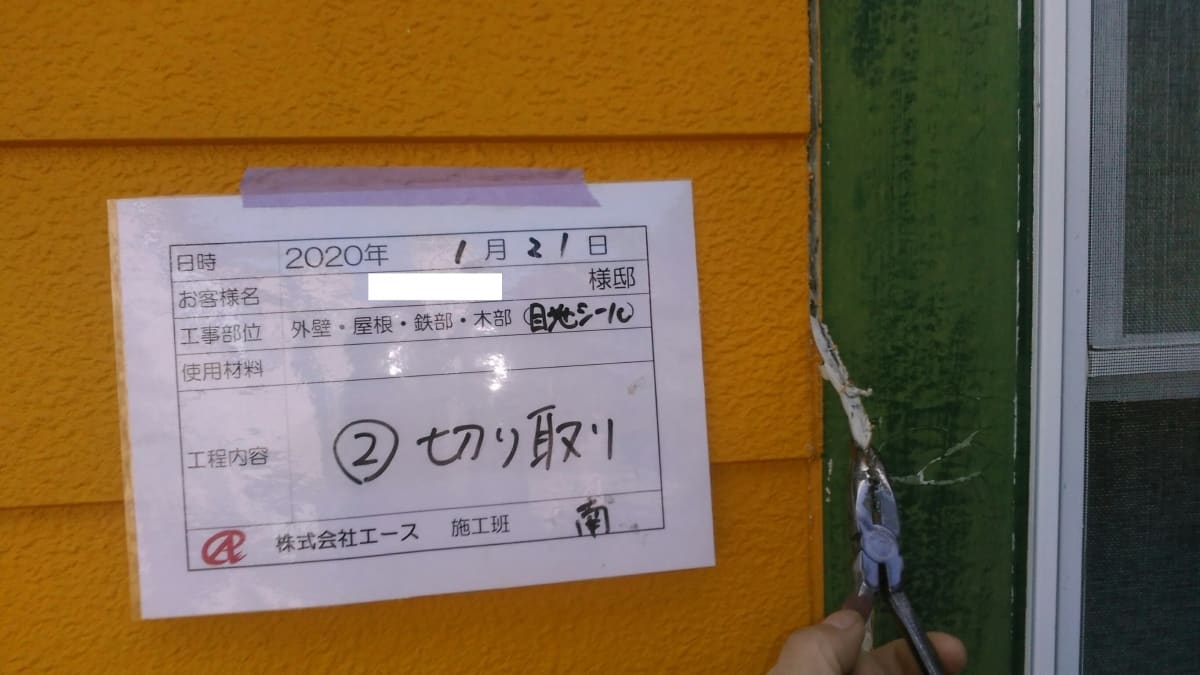 日時 2020年 1月21日
お客様名 様邸
工事部位 外壁・屋根・鉄部・木部・目地シール
使用材料
工程内容 ②切り取り
株式会社エース 施工班 南